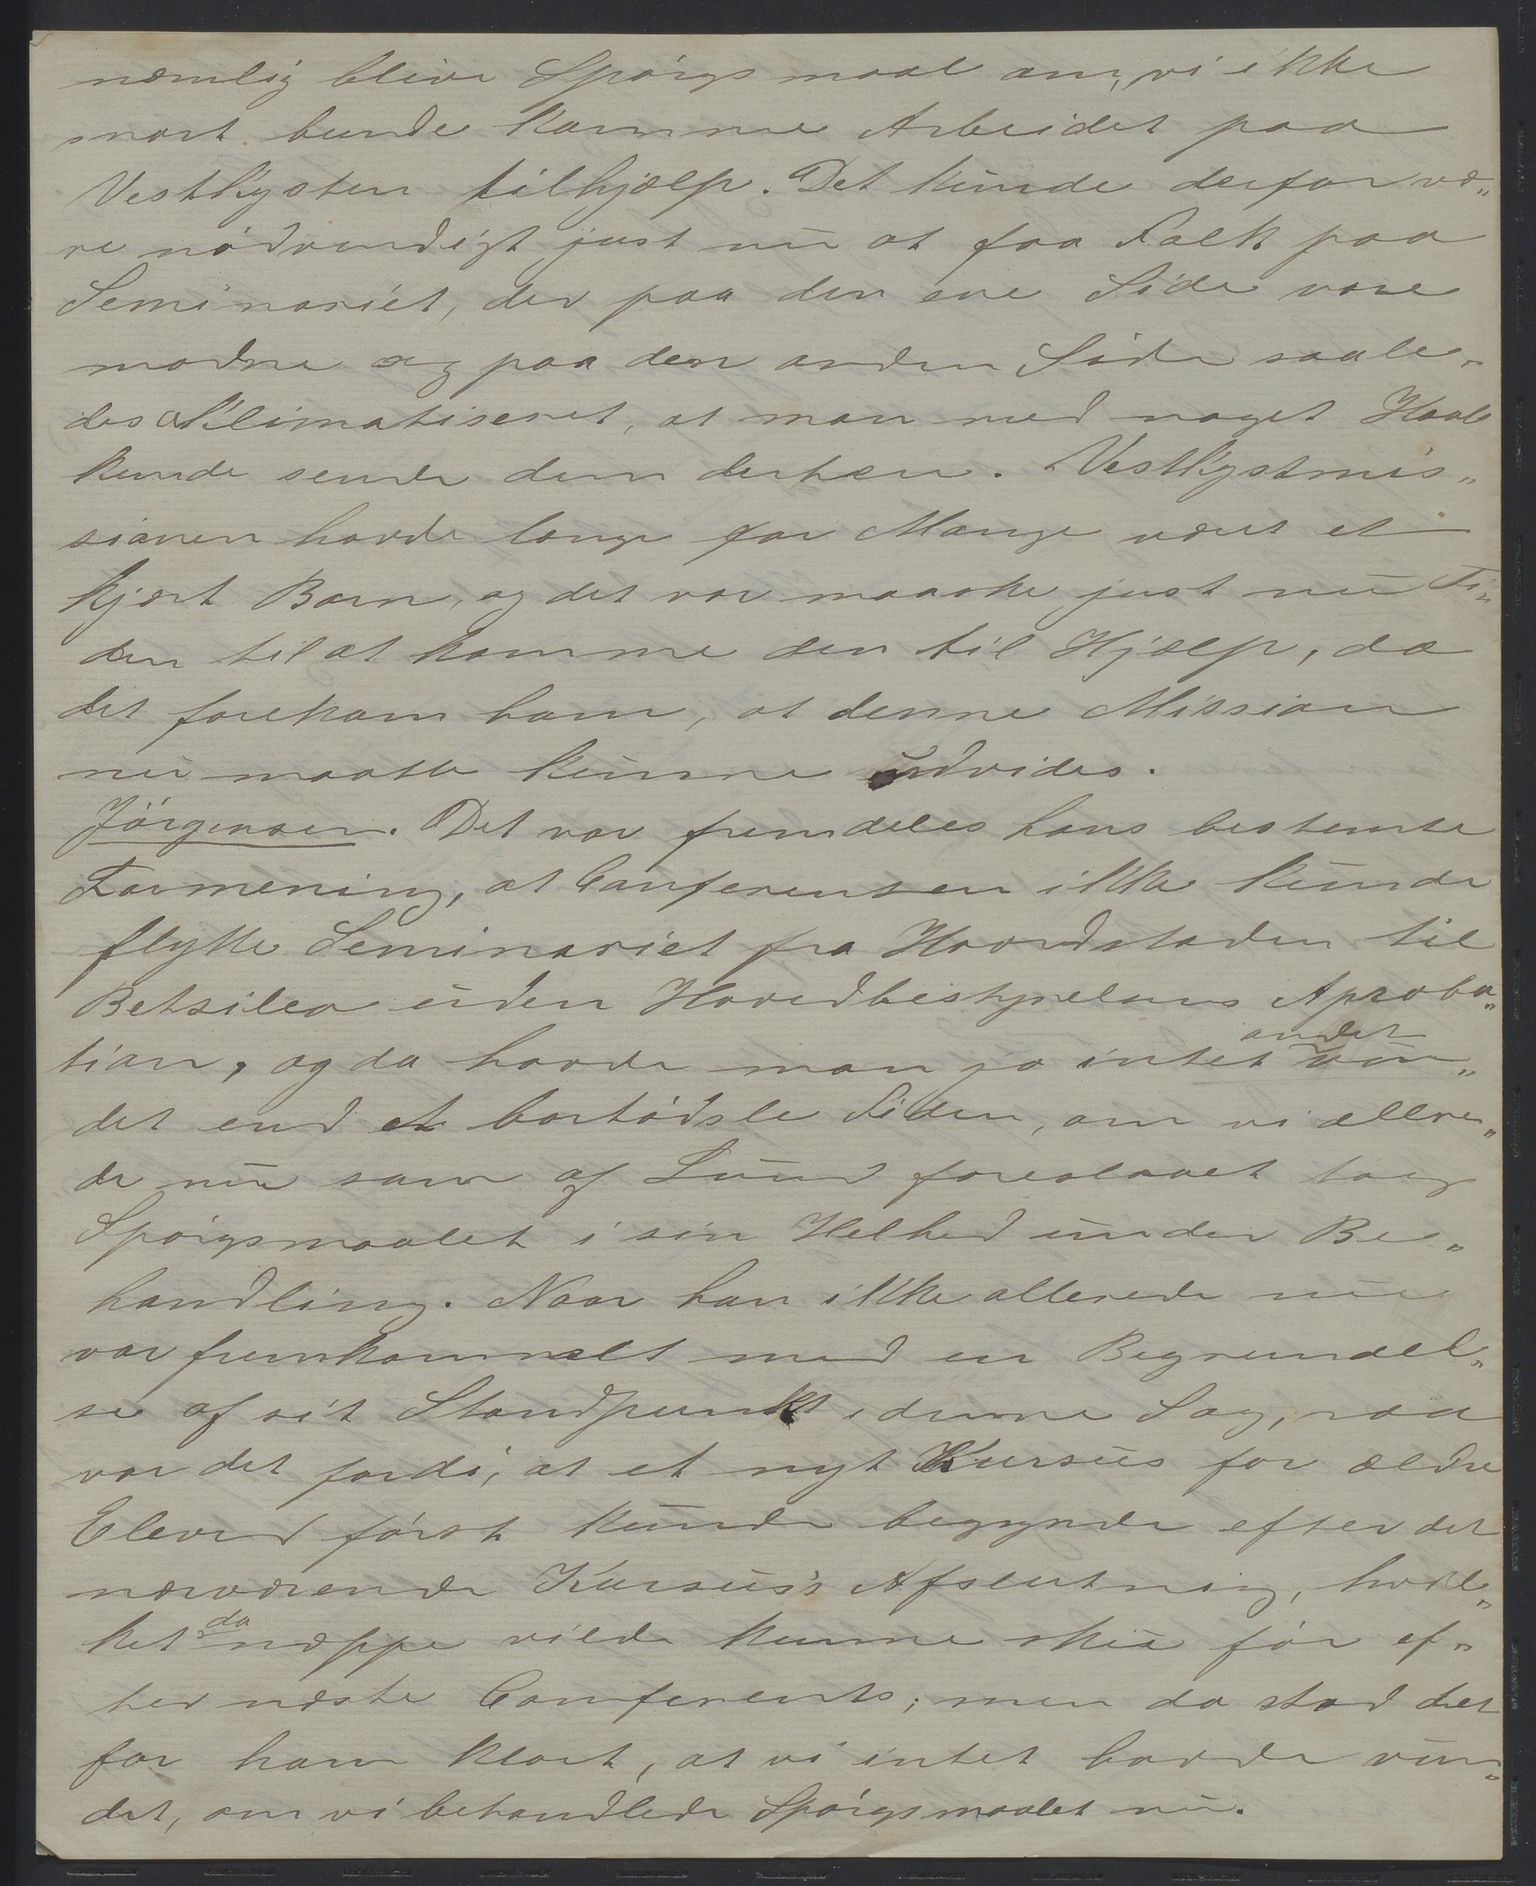 nemlig blive Spörgsmaal om, vi ikke
snart burde komme Arbeidet paa
Vestkysten tilhjælp. Det kunde derfor væ„
re nödvendigt just nu at faa Folk paa
Seminariet, der paa den ene Side vare
modne og paa den anden Side saale„
des Klimatiseret, at man med noget Haab
kunde sende dem derhen. Vestkystmis„
sionen havde længe for Mange været et
kjært Barn, og det var maaske just nu Ti„
den til at komme den til Hjælp, da
det forekom ham, at denne Mission
nu maatte kunne udvides.
Jörgensen. Det var fremdeles hans bestemte
Formening, at Conferentsen ikke kunde
flytte Seminariet fra Hovedstaden til
Betsileo uden Hovedbestyrelsens Aproba„
tion, og da havde man jo intet andet vun„
det end at bortödsle Tiden, om vi allere„
de nu som af Lund foreslaaet tog
Spörgsmaalet i sin Helhed under Be„
handling. Naar han ikke allerede nu
var fremkommet med en Begrundel„
se af sit Standpunkt i denne Sag, saa
var det fordi, at et nyt Kursus for ældre
Elever först kunde begynde efter det
nærværende Kursus's Afslutning, hvil„
ket da næppe vilde kunne ske för ef„
ter næste Conferents; men da stod det
for ham klart, at vi intet havde vun„
det, om vi behandlede Spörgsmaalet nu.